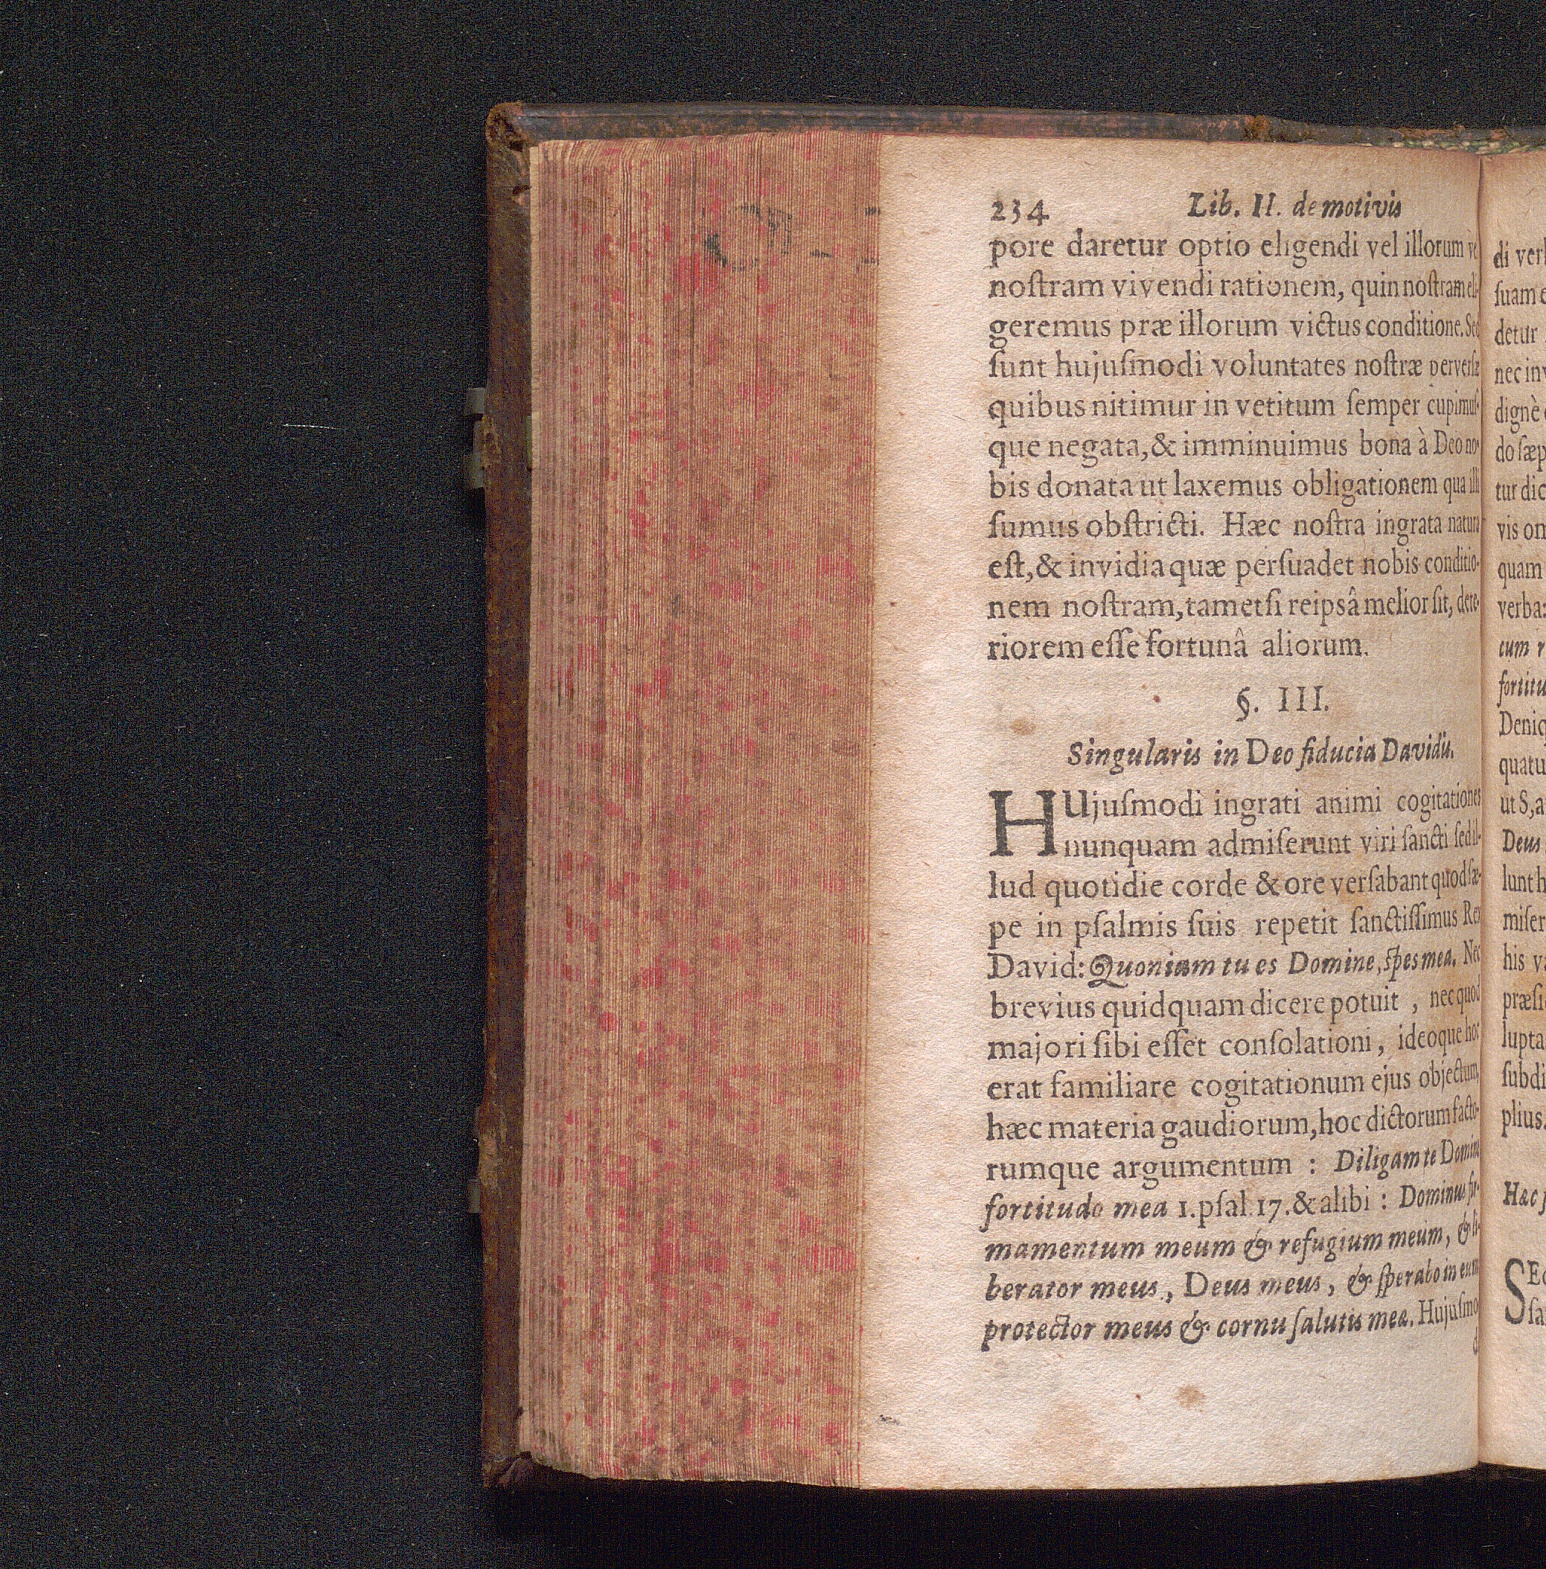 234 Lib. II. de motivis
pore daretur optio eligendi vel illorum ve
noſtram vivendi rationem, quin noſtram eli-
geremus præ illorum victus conditione. Sed
ſunt hujuſmodi voluntates noſtræ perverſæ
quibus nitimur in vetitum ſemper cupimuſ-
que negata, & imminuimus bona à Deo no-
bis donata ut laxemus obligationem qua illi
ſumus obſtricti. Hæc noſtra ingrata natura
eſt, & invidia quæ perſuadet nobis conditio-
nem noſtram, tametſi reipsâ melior ſit, dete-
riorem eſſe fortunâ aliorum.
§. III.
Singularis in Deo fiducia Davidis.
HUjuſmodi ingrati animi cogitationes
nunquam admiſerunt viri ſancti ſed il-
lud quotidie corde & ore verſabant quod ſæ-
pe in pſalmis ſuis repetit ſanctiſſimus Rex
David: Quoniam tu es Domine, ſpes mea. Nec
brevius quidquam dicere potuit, nec quod
majori ſibi eſſet conſolationi, ideoque hoc
erat familiare cogitationum ejus objectum,
hæc materia gaudiorum, hoc dictorum facto-
rumque argumentum : Diligam te Domine
fortitudo mea 1. pſal. 17. & alibi : Dominus fir-
mamentum meum & refugium meum, & li-
berator meus, Deus meus, & ſperabo in eum
protector meus & cornu ſalutis meæ. Hujuſmo-
di
di
ſuam
detur
nec
dignè
do
tur
vis
quam
verba:
tum
ut S,
Deus
his
plius.
Hæc